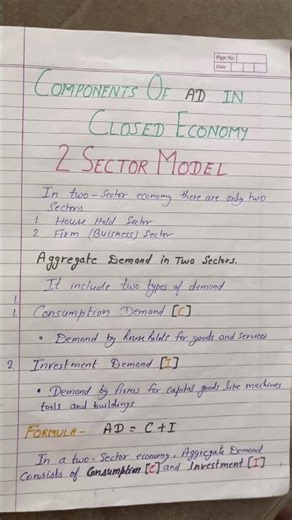 Page No.
Date
COMPONENTS OF AD IN
CLOSED ECONOMY
2 SECTOR MODEL
In two-Sector economy there are only two
Sectors
1 House Hold Sector
2 Firm (Buisness) Sector
Aggregate Demand in Two Sectors.
It include two types of demand
1.
1. Consumption Demand [C]
• Demand by households for goods and services
2 Investment Demand [I]
• Demand by firms for capital goods like machines
tools and buildings
FORMULA- AD = C+I
In a two-Sector economy, Aggregate Demand
Consists of Consumption [C] and Investment [I]